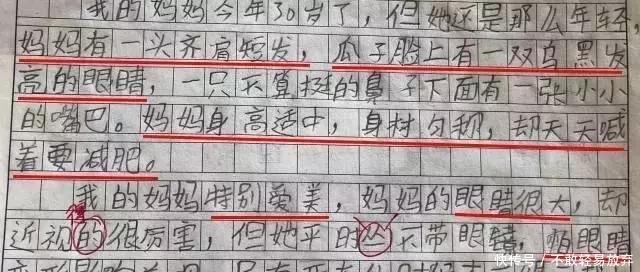 我的妈妈今年30岁了，但她还是那么年轻，
妈妈有一头齐肩短发，瓜子脸上有一双乌黑发
亮的眼睛，一只不算挺的鼻子下面有一张小小
的嘴巴。妈妈身高适中，身材匀称，却天天喊
着要减肥。
我的妈妈特别爱美，妈妈的眼睛很大，却
得
近视的很厉害，但她平时从不带眼镜，
快传号/不敢轻易放弃